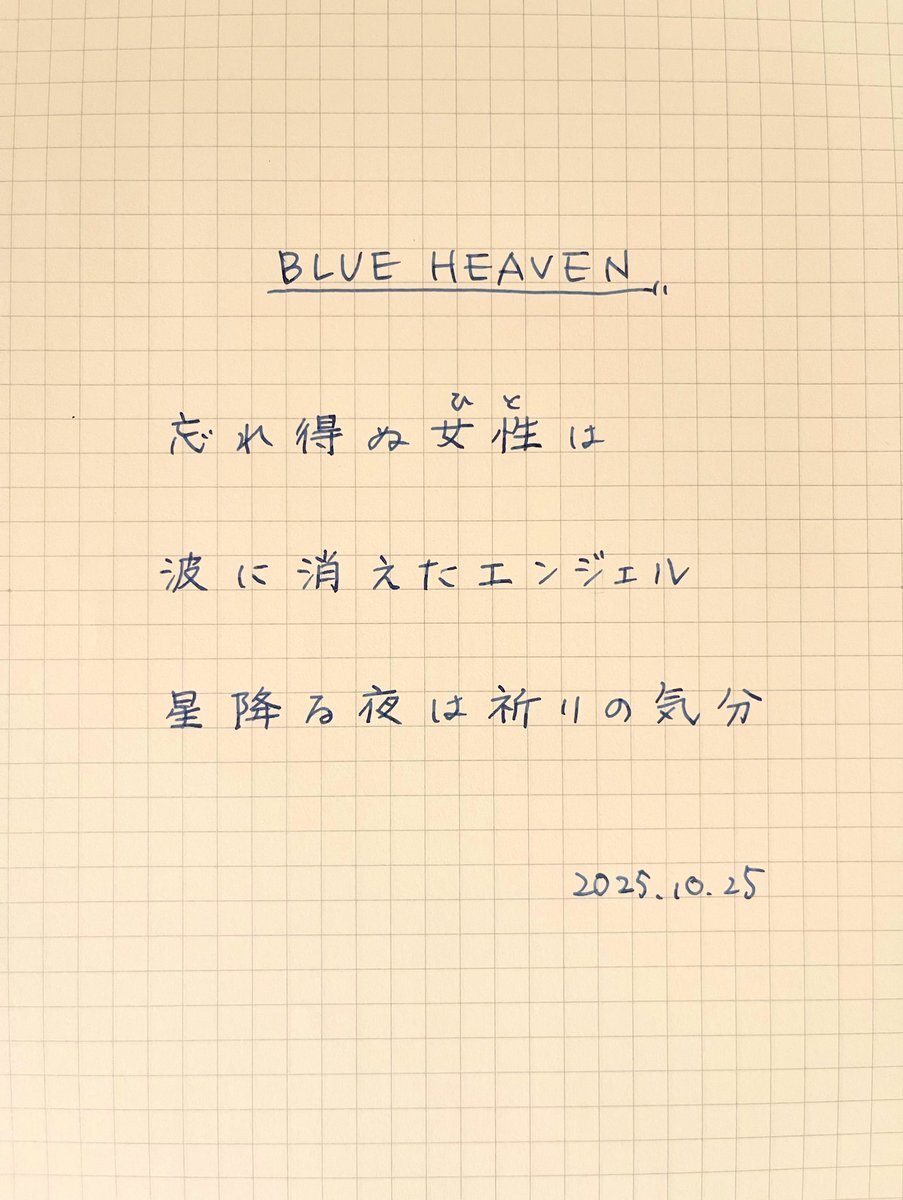 BLUE HEAVEN
ひと
忘れ得ぬ女性は
波に消えたエンジェル
星降る夜は祈りの気分
2025.10.25